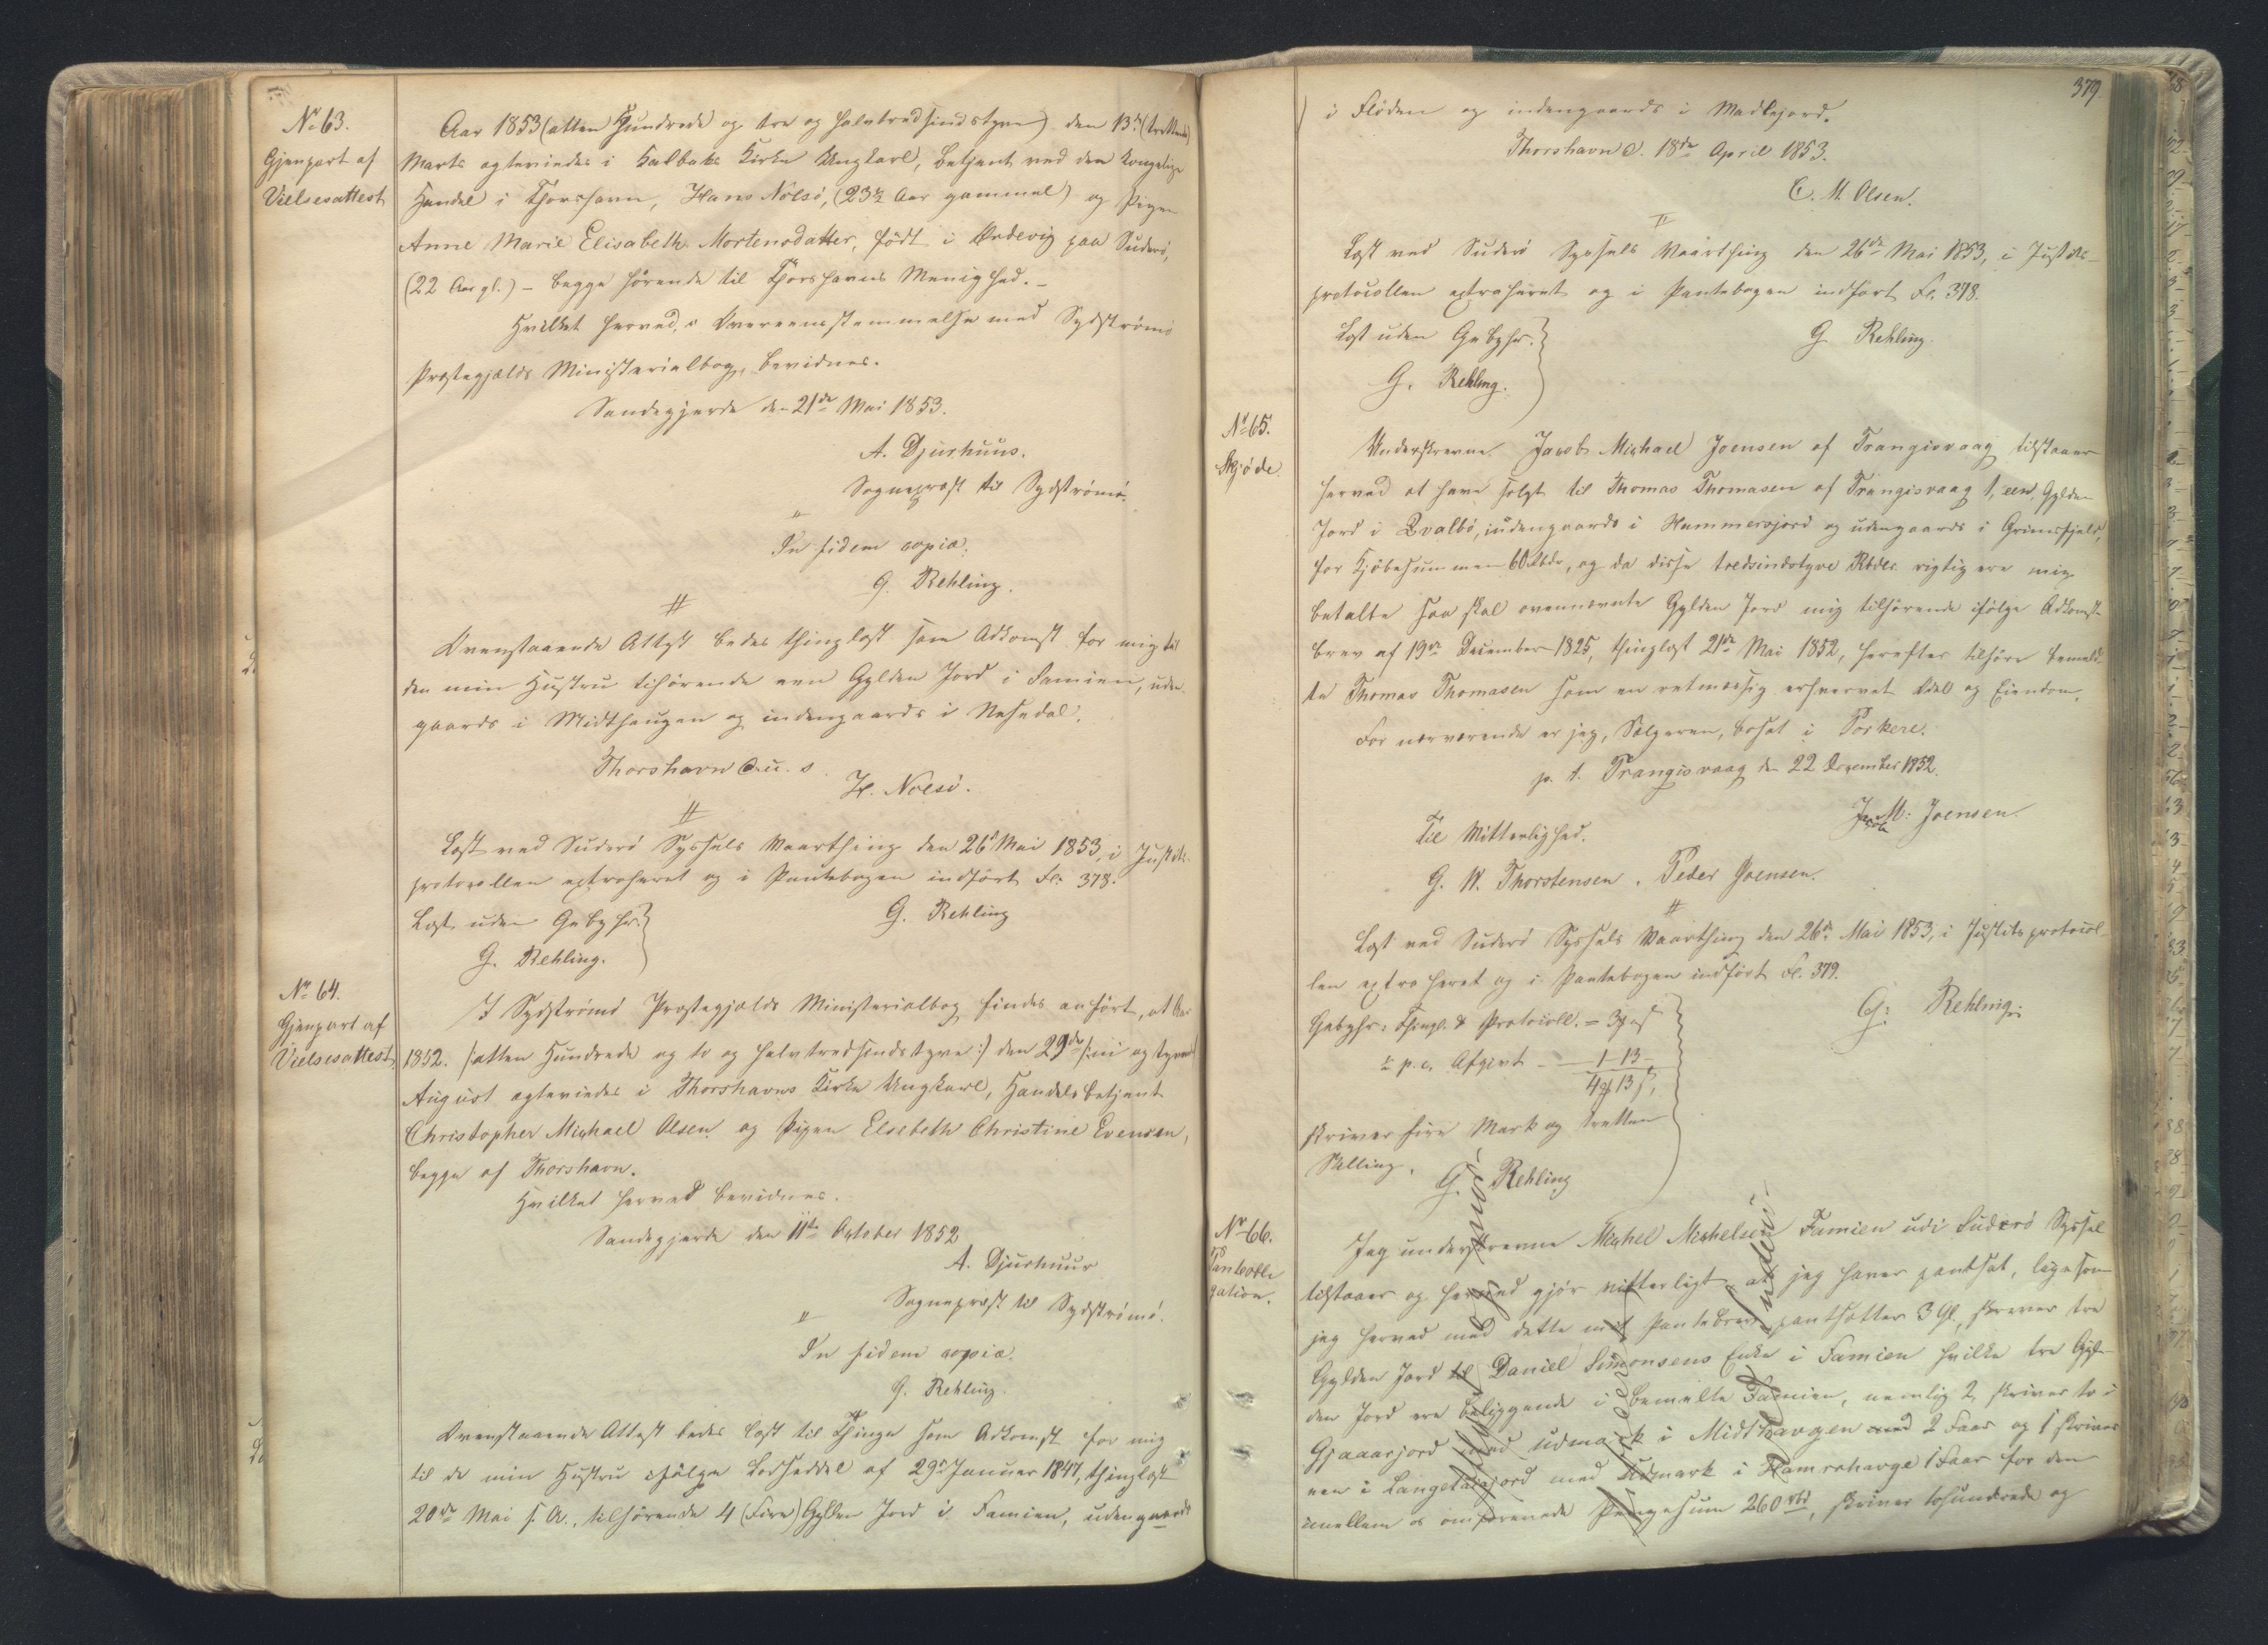 No 63.
Gjenpart af
Vielsesattest
Aar 1853 (atten Hundrede og tre og halvtredsindstyve) den 13de (trettende)
Marts ægteviedes i Kalbaks Kirke Ungkarl, betjent ved den Kongelige
Handel i Thorshavn, Hans Nolsö, (23½ Aar gammel) og Pigen
Anne Marie Elisabeth Mortensdatter, født i Ördevig paa Suderö,
(22 Aar gl.) – begge hörende til Thorshavns Menighed. –
Hvilket herved, i Overeensstemmelse med Sydströmö
Præstegjælds Ministerialbog, bevidnes.
Sandegjerde den 21de Mai 1853.
A. Djurhuus.
Sognepræst til Sydströmö.
"
In fidem copiæ:
G. Rehling.
#
Ovenstaaende Attest bedes thinglæst som Adkomst for mig til
den min Hustru tilhörende een Gylden Jord i Famien, uden-
gaards i Midthaugen og indengaards i Nesedal.
Thorshavn d. u. s.
H. Nolsö.
#
Læst ved Suderö Syssels Vaarthing den 26de Mai 1853, i Justits-
protocollen extraheret og i Pantebogen indfört Fl. 378.
G. Rehling
Læst uden Gebyhr.
G. Rehling.
No 64.
Gjenpart af
Vielsesattest.
I Sydströmö Præstegjælds Ministerialbog findes anfört, at Aar
1852. /:atten Hundrede og to og halvtredsindstyve:/ den 29de /:ni og tyvende
August ægteviedes i Thorshavns Kirke Ungkarl, Handelsbetjent
Christopher Michael Olsen og Pigen Elsebeth Christine Evensen,
begge af Thorshavn.
Hvilket herved bevidnes.
Sandegjerde den 11te October 1852
A. Djurhuus
Sognepræst til Sydströmö.
"
In fidem copiæ.
G. Rehling.
#
Ovenstaaende Attest bedes læst til Thinge som Adkomst for mig
til de min Hustru ifölge Lodseddel af 29de Januar 1847, thinglæst
20de Mai s. A., tilhörende 4 (Fire) Gylden Jord i Famien, udengaards
379.
i Flöden og indengaards i Madlejord.
Thorshavn d. 18de April 1853.
C. M. Olsen.
#
Læst ved Suderö Syssels Vaarthing den 26de Mai 1853, i Justits-
protocollen extraheret og i Pantebogen indfört Fl. 378.
G Rehling.
Læst uden Gebyhr.
G. Rehling.
No 65.
Skjöde.
Underskrevne Jacob Michael Joensen af Trangisvaag tilstaaer
herved at have solgt til Thomas Thomasen af Trangisvaag 1, een, Gylden
Jord i Qvalbö, indengaards i Hammersjord og udengaards i Grimsfjeld,
for Kjöbesummen 60 Rbdr, og da disse tredsindstyve Rbdlr. rigtig ere mig
betalte saa skal ovennævnte Gylden Jord mig tilhörende ifölge Adkomst-
brev af 19de December 1825, thinglæst 21de Mai 1852, herefter tilhöre bemeld-
te Thomas Thomasen som en retmæssig erhvervet Odel og Eiendom.
For nærværende er jeg, Sælgeren, bosat i Porkere.
p. t. Trangisvaag den 22 December 1852.
Jacob M: Joensen.
Til Vitterlighed.
G. W. Thorstensen. Peder Joensen.
#
Læst ved Suderö Syssels Vaarthing den 26de Mai 1853, i Justitsprotocol-
len extraheret og i Pantebogen indfört Fl. 379.
G: Rehling.
Gebyhr: Thingl. & Protocoll. = 3 ß
½ p. c. Afgivt – 1–13–
4 13 ß,
skriver fire Mark og tretten
Skilling.
G. Rehling
No 66.
Pantobli-
gation.
Jeg underskrevne Michel Michelsen Famien udi Suderö Syssel
tilstaaer og herved gjör vitterligt, at jeg haver pantsat, ligesom
jeg herved med dette mit Pantebrev pantsætter 3 Gl, skriver tre
Gylden Jord til Daniel Simonsens Enke i Famien hvilke tre Gyl-
den Jord ere beliggende i bemelte Famien, nemlig 2 skriver to i
Gjaaarjord med udmark i Midthavgen med 2 Faar og 1 skriver
een i Langetaajord med Udmark i Hamrahavge 1 Faar for den
imellem os omforenede Pengesum 260 rbd, skriver tohundrede og